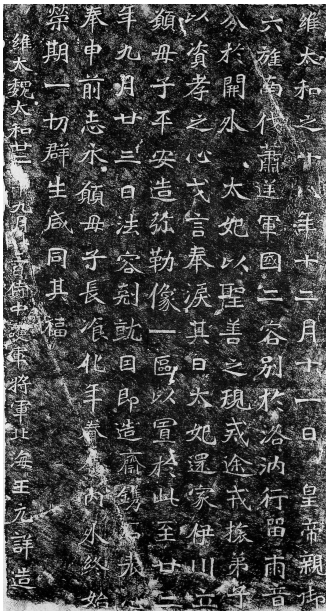 維太和之十八年十二月十一日皇帝親御
六旌南伐蕭逆軍國二容別於洛汭行留兩音
分於開外太妃以聖善之規戒途戎旅弟子
以資孝之心戈言奉淚其日太妃還家伊川立
願母子平安造弥勒像一區以置於此至廿二
年九月廿三日法容剋就因即造齋鐫石表
奉申前志永願母子長飡化年眷內外終始
榮期一切群生咸同其福
維太魏太和廿二年九月廿三日侍中護軍將軍北海王元詳造